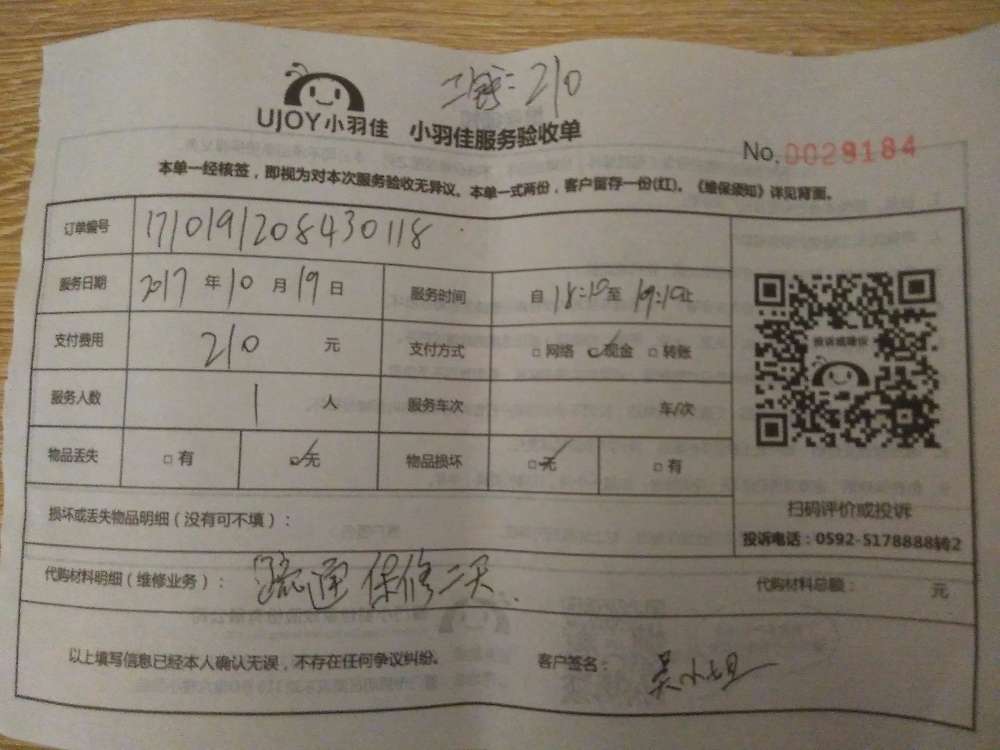 工钱：210
UJOY小羽佳 小羽佳服务验收单
No. 0029184
本单一经核签，即视为对本次服务验收无异议。本单一式两份，客户留存一份(红)。《维保须知》详见背面。
订单编号 171019120843​0118
服务日期 2017 年 10 月 19 日 服务时间 自 18:10 至 19:10 止
支付费用 210 元 支付方式 □ 网络 □ 现金 □ 转账
服务人数 1 人 服务车次 车/次
物品丢失 □ 有 □ 无 物品损坏 □ 无 □ 有
投诉或建议
扫码评价或投诉
损坏或丢失物品明细（没有可不填）：
投诉电话：0592-5178888转2
代购材料明细（维修业务）： 疏通 保修二天 代购材料总额： 元
以上填写信息已经本人确认无误，不存在任何争议纠纷。 客户签名： 吴小姐